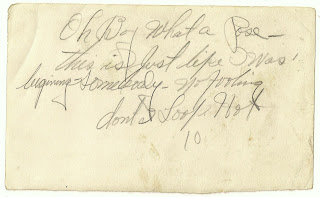 Oh Boy What a Pose -
this is just like I was
begining somebody - no fooling
dont I Look Hot
10